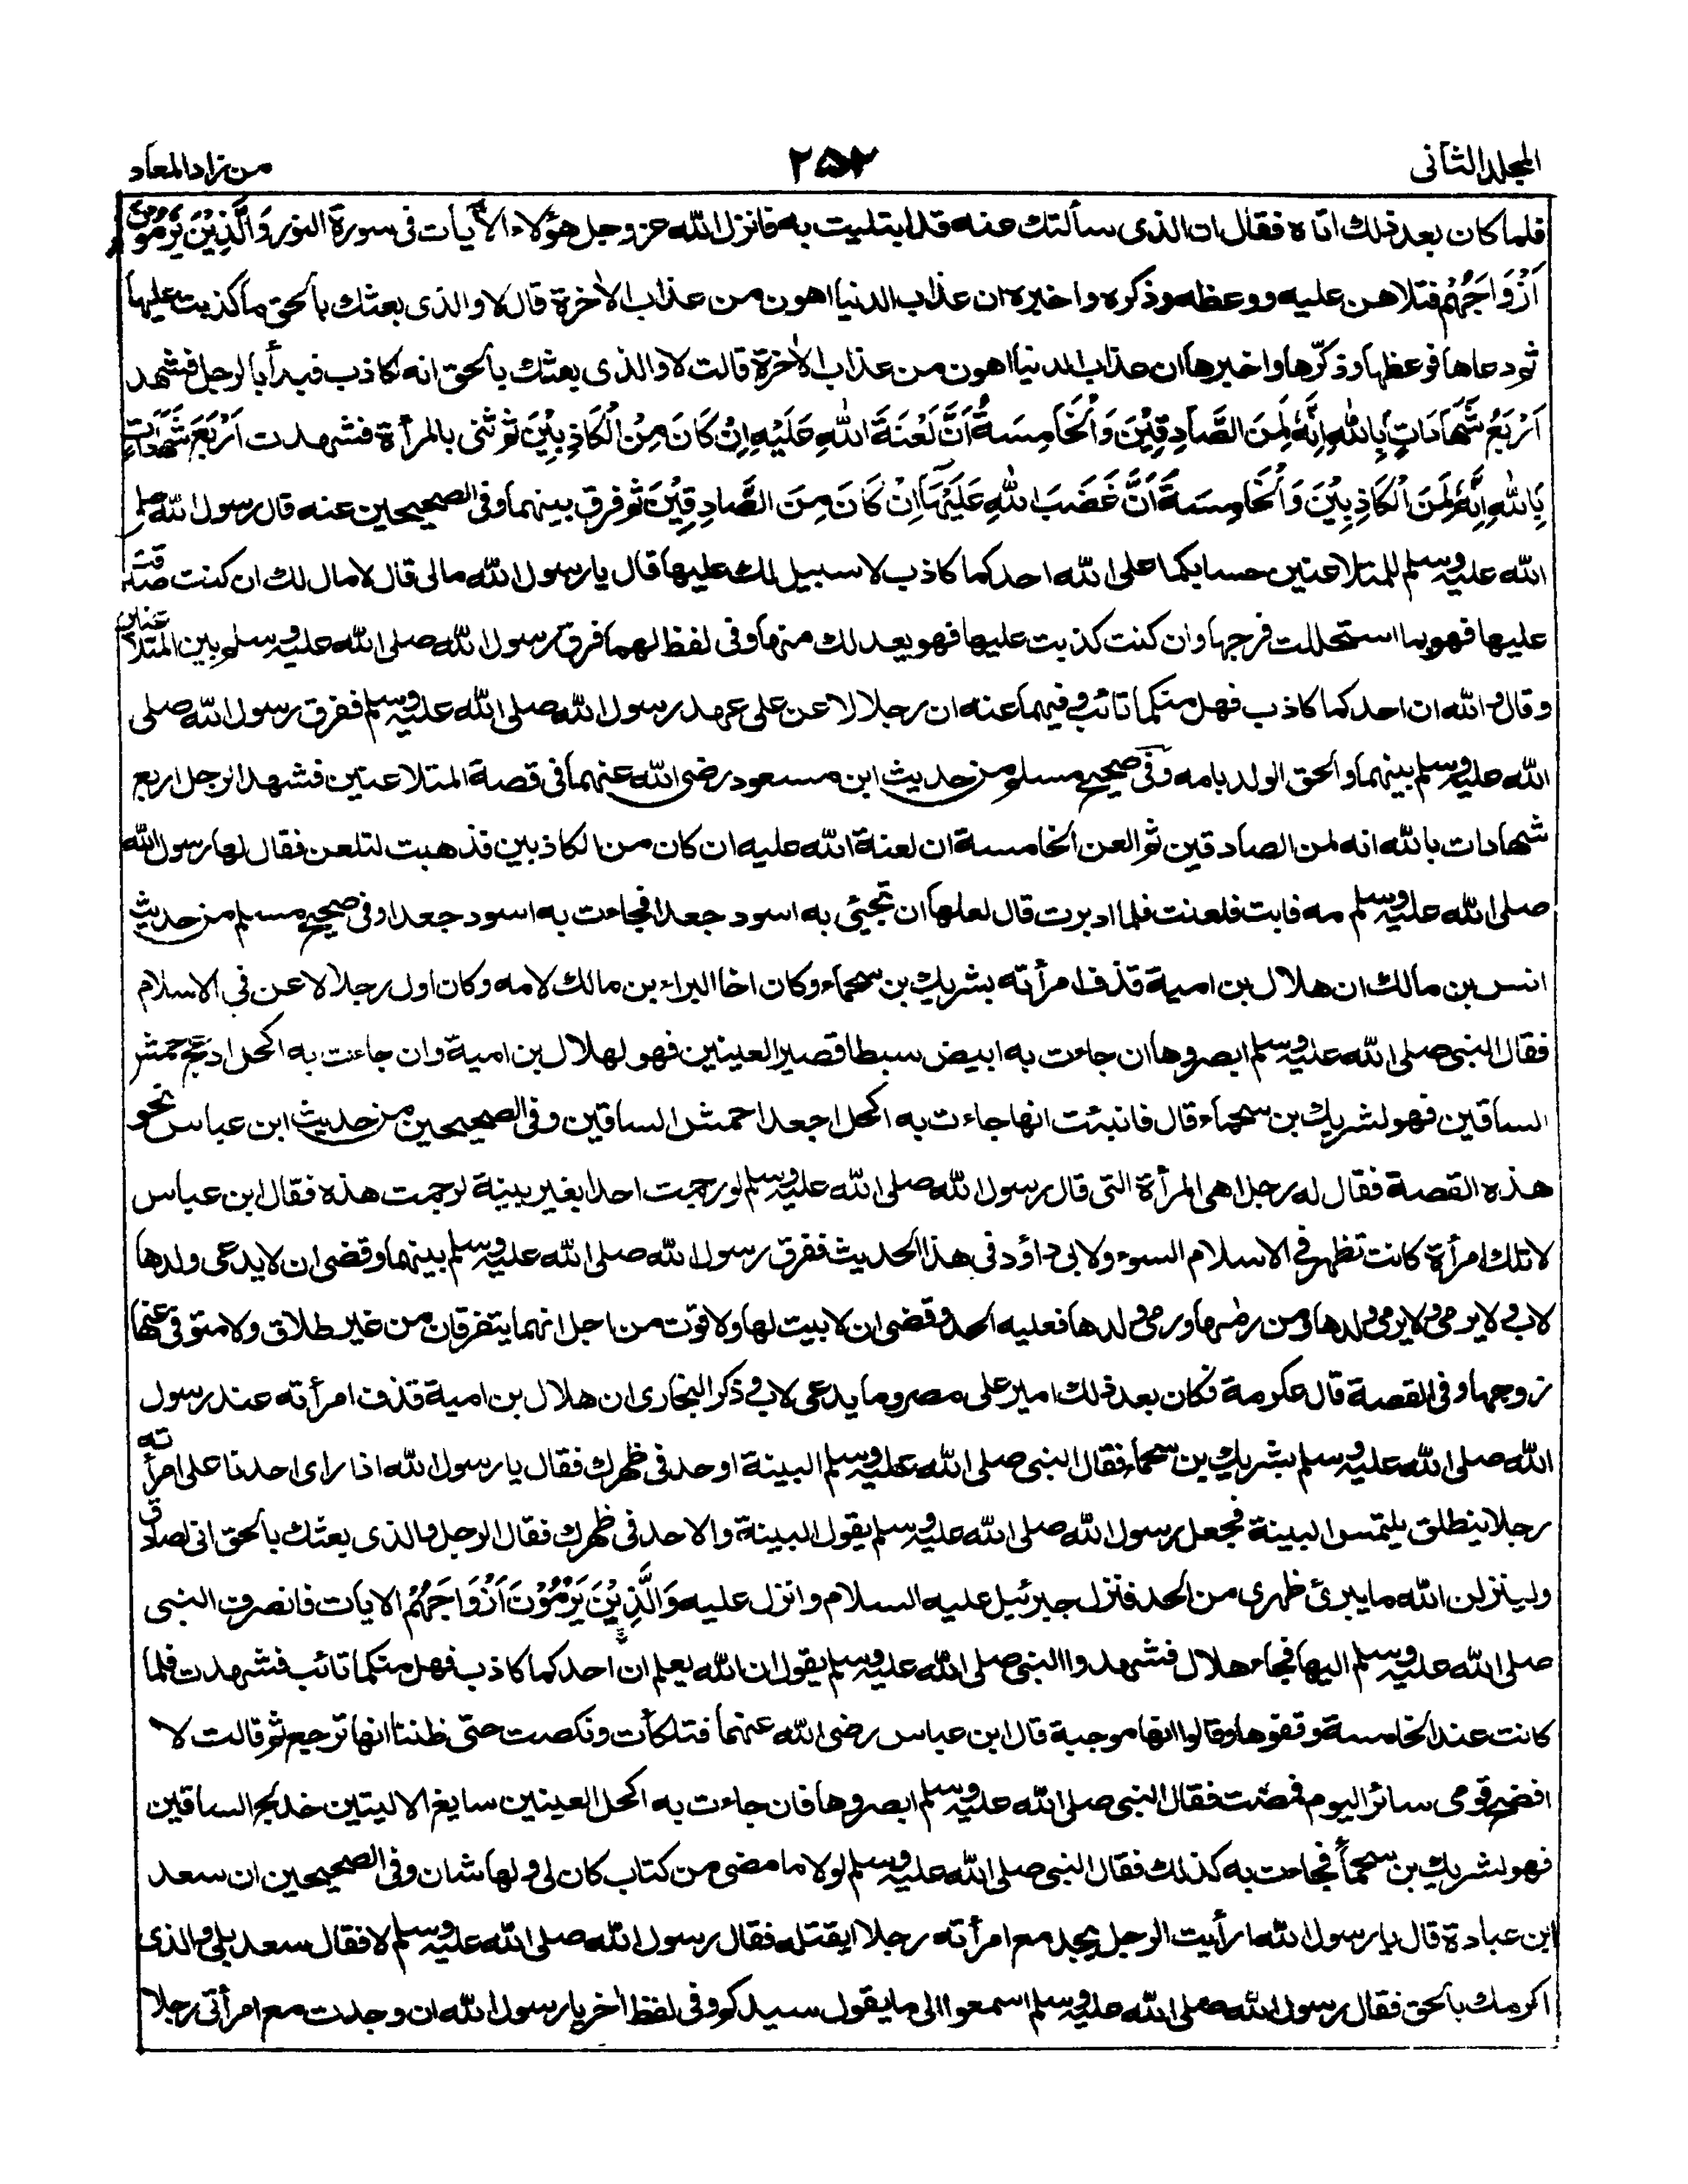 المجلد الثانی
٢٥٢
من زاد المعاد
فلما کان بعد ذلك اتاه فقال ان الذی سألتك عنه قد ابتلیت به فانزل الله عز وجل هؤلاء الآیات فی سورة النور وَالَّذِیْنَ یَرْمُوْنَ
اَزْوَاجَهُمْ فتلاهن علیه ووعظه وذکره واخبره ان عذاب الدنیا اهون من عذاب الاٰخرة قال لا والذی بعثك بالحق ما کذبت علیها
ثم دعاها فوعظها وذکّرها واخبرها ان عذاب الدنیا اهون من عذاب الاٰخرة قالت لا والذی بعثك بالحق انه لکاذب فبدأ بالرجل فشهد
اَرْبَعُ شَهَادَاتٍ بِاللهِ اِنَّهٗ لَمِنَ الصَّادِقِیْنَ وَالْخَامِسَةُ اَنَّ لَعْنَةَ اللهِ عَلَیْهِ اِنْ کَانَ مِنَ الْکَاذِبِیْنَ ثم ثنی بالمرأة فشهدت اَرْبَعَ شَهَادَاتٍ
بِاللهِ اِنَّهٗ لَمِنَ الْکَاذِبِیْنَ وَالْخَامِسَةَ اَنَّ غَضَبَ اللهِ عَلَیْهَا اِنْ کَانَ مِنَ الصَّادِقِیْنَ ثم فرق بینهما وفی الصحیحین عنه قال رسول الله صلی
الله علیه وسلم للمتلاعنین حسابکما علی الله احدکما کاذب لا سبیل لك علیها قال یا رسول الله مالی قال لا مال لك ان کنت صدقت
علیها فهو بما استحللت فرجها وان کنت کذبت علیها فهو بعد لك منها وفی لفظ لهما فرق رسول الله صلی الله علیه وسلم بین المتلاعنین
وقال والله ان احدکما کاذب فهل منکما تائب وفیهما عنه ان رجلا لاعن علی عهد رسول الله صلی الله علیه وسلم ففرق رسول الله صلی
الله علیه وسلم بینهما والحق الولد بامه وفی صحیح مسلم من حدیث ابن مسعود رضی الله عنهما فی قصة المتلاعنین فشهد الرجل اربع
شهادات بالله انه لمن الصادقین ثم العن الخامسة ان لعنة الله علیه ان کان من الکاذبین فذهبت لتلعن فقال لها رسول الله
صلی الله علیه وسلم مه فابت فلعنت فلما ادبرت قال لعلها ان تجئی به اسود جعدا فجاءت به اسود جعدا وفی صحیح مسلم من حدیث
انس بن مالك ان هلال بن امیة قذف امرأته بشریك بن سحماء وکان اخا البراء بن مالك لامه وکان اول رجل لاعن فی الاسلام
فقال النبی صلی الله علیه وسلم ابصروها ان جاءت به ابیض سبطا قصیر العینین فهو لهلال بن امیة وان جاءت به اکحل ادعج حمش
الساقین فهو لشریك بن سحماء قال فانبئت انها جاءت به اکحل جعدا حمش الساقین وفی الصحیحین من حدیث ابن عباس نحو
هذه القصة فقال له رجل اهی المرأة التی قال رسول الله صلی الله علیه وسلم لو رجمت احدا بغیر بینة لرجمت هذه فقال ابن عباس
لا تلك امرأة کانت تظهر فی الاسلام السوء ولابی داؤد فی هذا الحدیث ففرق رسول الله صلی الله علیه وسلم بینهما وقضی ان لا یدعی ولدها
لاب ولا یرمی ولا یرمی ولدها ومن رماها ورمی ولدها فعلیه الحد وقضی ان لا بیت لها ولا قوت من اجل انهما یتفرقان من غیر طلاق ولا متوفی عنها
زوجها وفی القصة قال عکرمة فکان بعد ذلك امیر علی مصر وما یدعی لاب وذکر البخاری ان هلال بن امیة قذف امرأته عند رسول
الله صلی الله علیه وسلم بشریك بن سحماء فقال النبی صلی الله علیه وسلم البینة او حد فی ظهرك فقال یا رسول الله اذا رای احدنا علی امرأته
رجلا ینطلق یلتمس البینة فجعل رسول الله صلی الله علیه وسلم یقول البینة والا حد فی ظهرك فقال الرجل والذی بعثك بالحق انی لصادق
ولینزلن الله ما یبرئ ظهری من الحد فنزل جبرئیل علیه السلام وانزل علیه وَالَّذِیْنَ یَرْمُوْنَ اَزْوَاجَهُمْ الایات فانصرف النبی
صلی الله علیه وسلم الیها فجاء هلال فشهد والنبی صلی الله علیه وسلم یقول ان الله یعلم ان احدکما کاذب فهل منکما تائب فشهدت فلما
کانت عند الخامسة وقفوها وقالوا انها موجبة قال ابن عباس رضی الله عنهما فتلکأت ونکصت حتی ظننا انها ترجع ثم قالت لا
افضح قومی سائر الیوم فمضت فقال النبی صلی الله علیه وسلم ابصروها فان جاءت به اکحل العینین سابغ الالیتین خدلج الساقین
فهو لشریك بن سحمأ فجاءت به کذلك فقال النبی صلی الله علیه وسلم لولا ما مضی من کتاب کان لی ولها شان وفی الصحیحین ان سعد
ابن عبادة قال یا رسول الله ارأیت الرجل یجد مع امرأته رجلا ایقتله فقال رسول الله صلی الله علیه وسلم لا فقال سعد بلی والذی
اکرمك بالحق فقال رسول الله صلی الله علیه وسلم اسمعوا الی ما یقول سیدکم وفی لفظ اخر یا رسول الله ان وجدت مع امرأتی رجلا